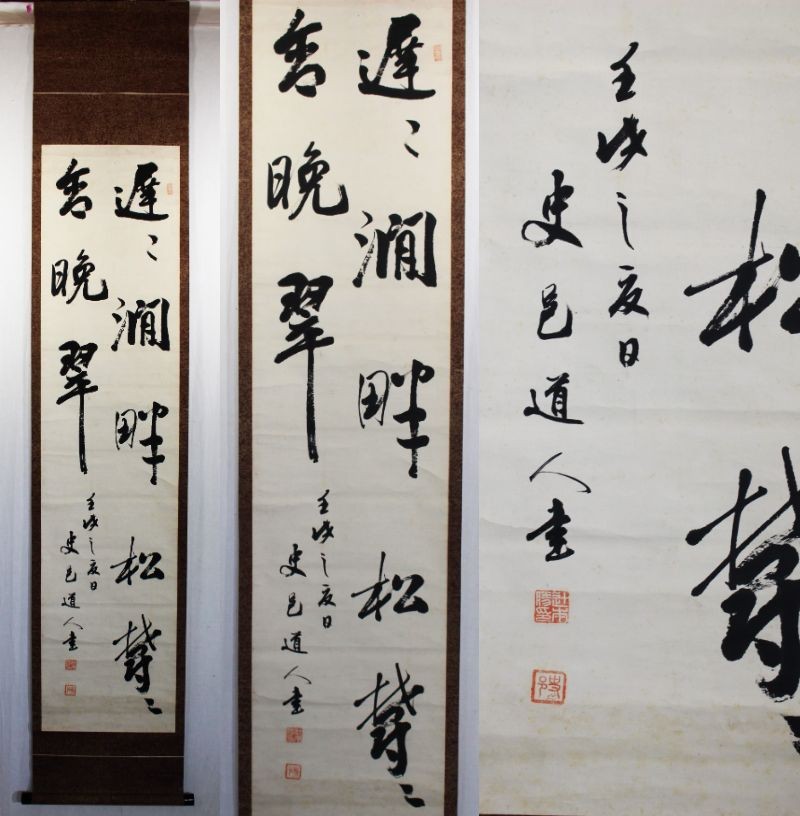 遲々澗畔松鬱々
含晩翠
壬戌之夏日
史邑道人書
遲々澗畔松鬱々
含晩翠
壬戌之夏日
史邑道人書
松鬱
壬戌之夏日
史邑道人書